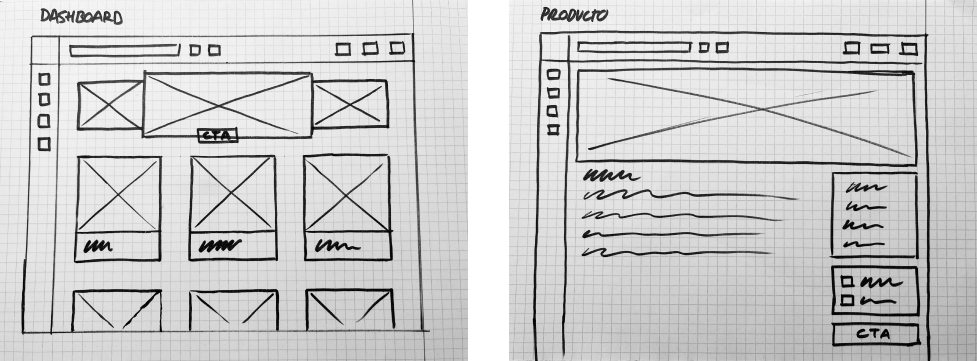 DASHBOARD
CTA
PRODUCTO
CTA